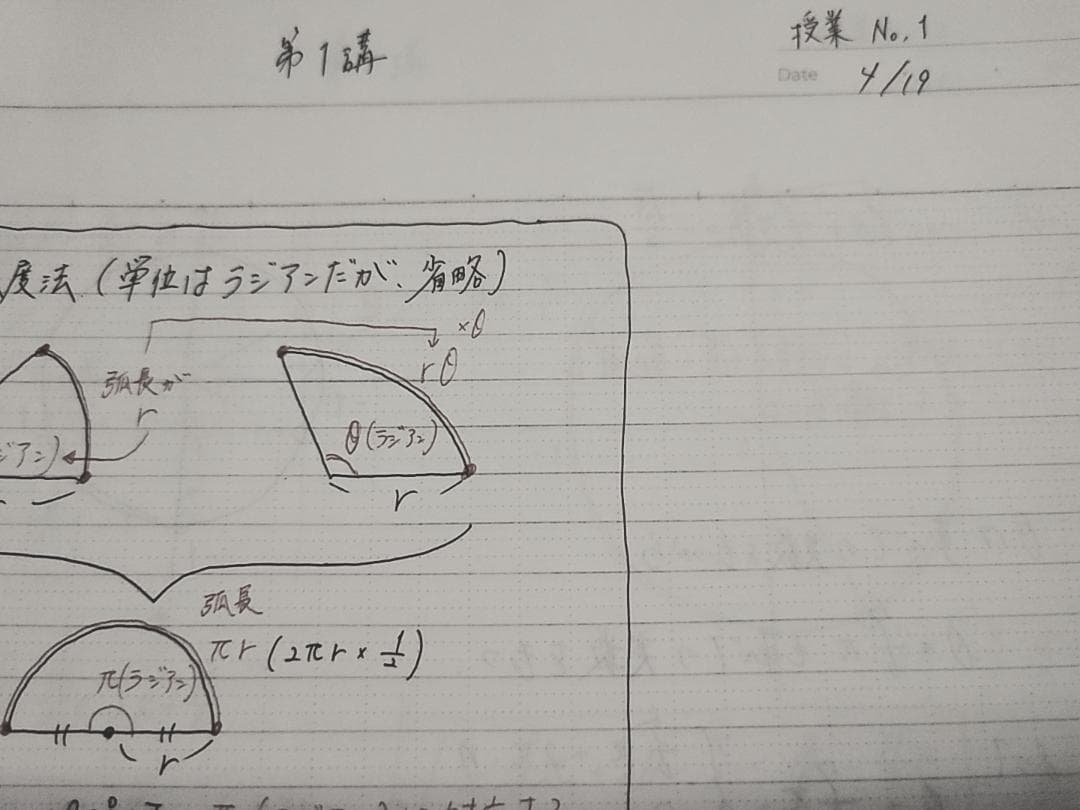 第1講
授業 No.1
Date 4/19
度法（単位はラジアンだが、省略）
×θ
rθ
弧長が
r
ジアン)
θ(ラジアン)
r
弧長
πr (2πr × 1/2)
π(ラジアン)
r